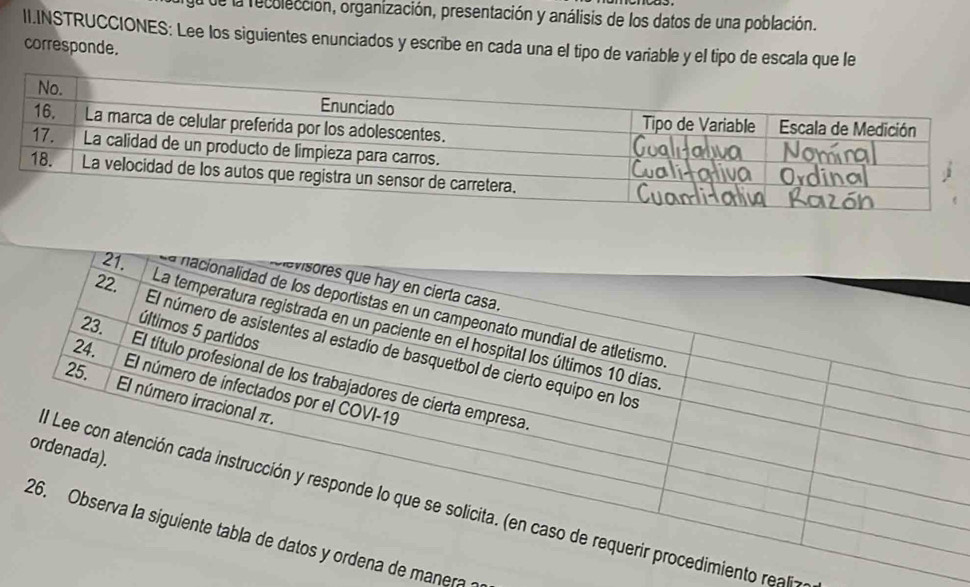 la recolección, organización, presentación y análisis de los datos de una población.
II.INSTRUCCIONES: Lee los siguientes enunciados y escribe en cada una el tipo de variable y el tipo de escala que le
corresponde.
No. Enunciado Tipo de Variable Escala de Medición
16. La marca de celular preferida por los adolescentes. Cualitativa Nominal
17. La calidad de un producto de limpieza para carros. Cualitativa Ordinal
18. La velocidad de los autos que registra un sensor de carretera. Cuantitativa Razón
que hay en cierta casa.
nacionalidad de los deportistas en un campeonato mundial de atletismo.
21. La temperatura registrada en un paciente en el hospital los últimos 10 días.
22. El número de asistentes al estadio de basquetbol de cierto equipo en los
últimos 5 partidos
23. El título profesional de los trabajadores de cierta empresa.
24. El número de infectados por el COVI-19
25. El número irracional π.
II Lee con atención cada instrucción y responde lo que se solicita. (en caso de requerir procedimiento
ordenada).
26. Observa la siguiente tabla de datos y ordena de manera